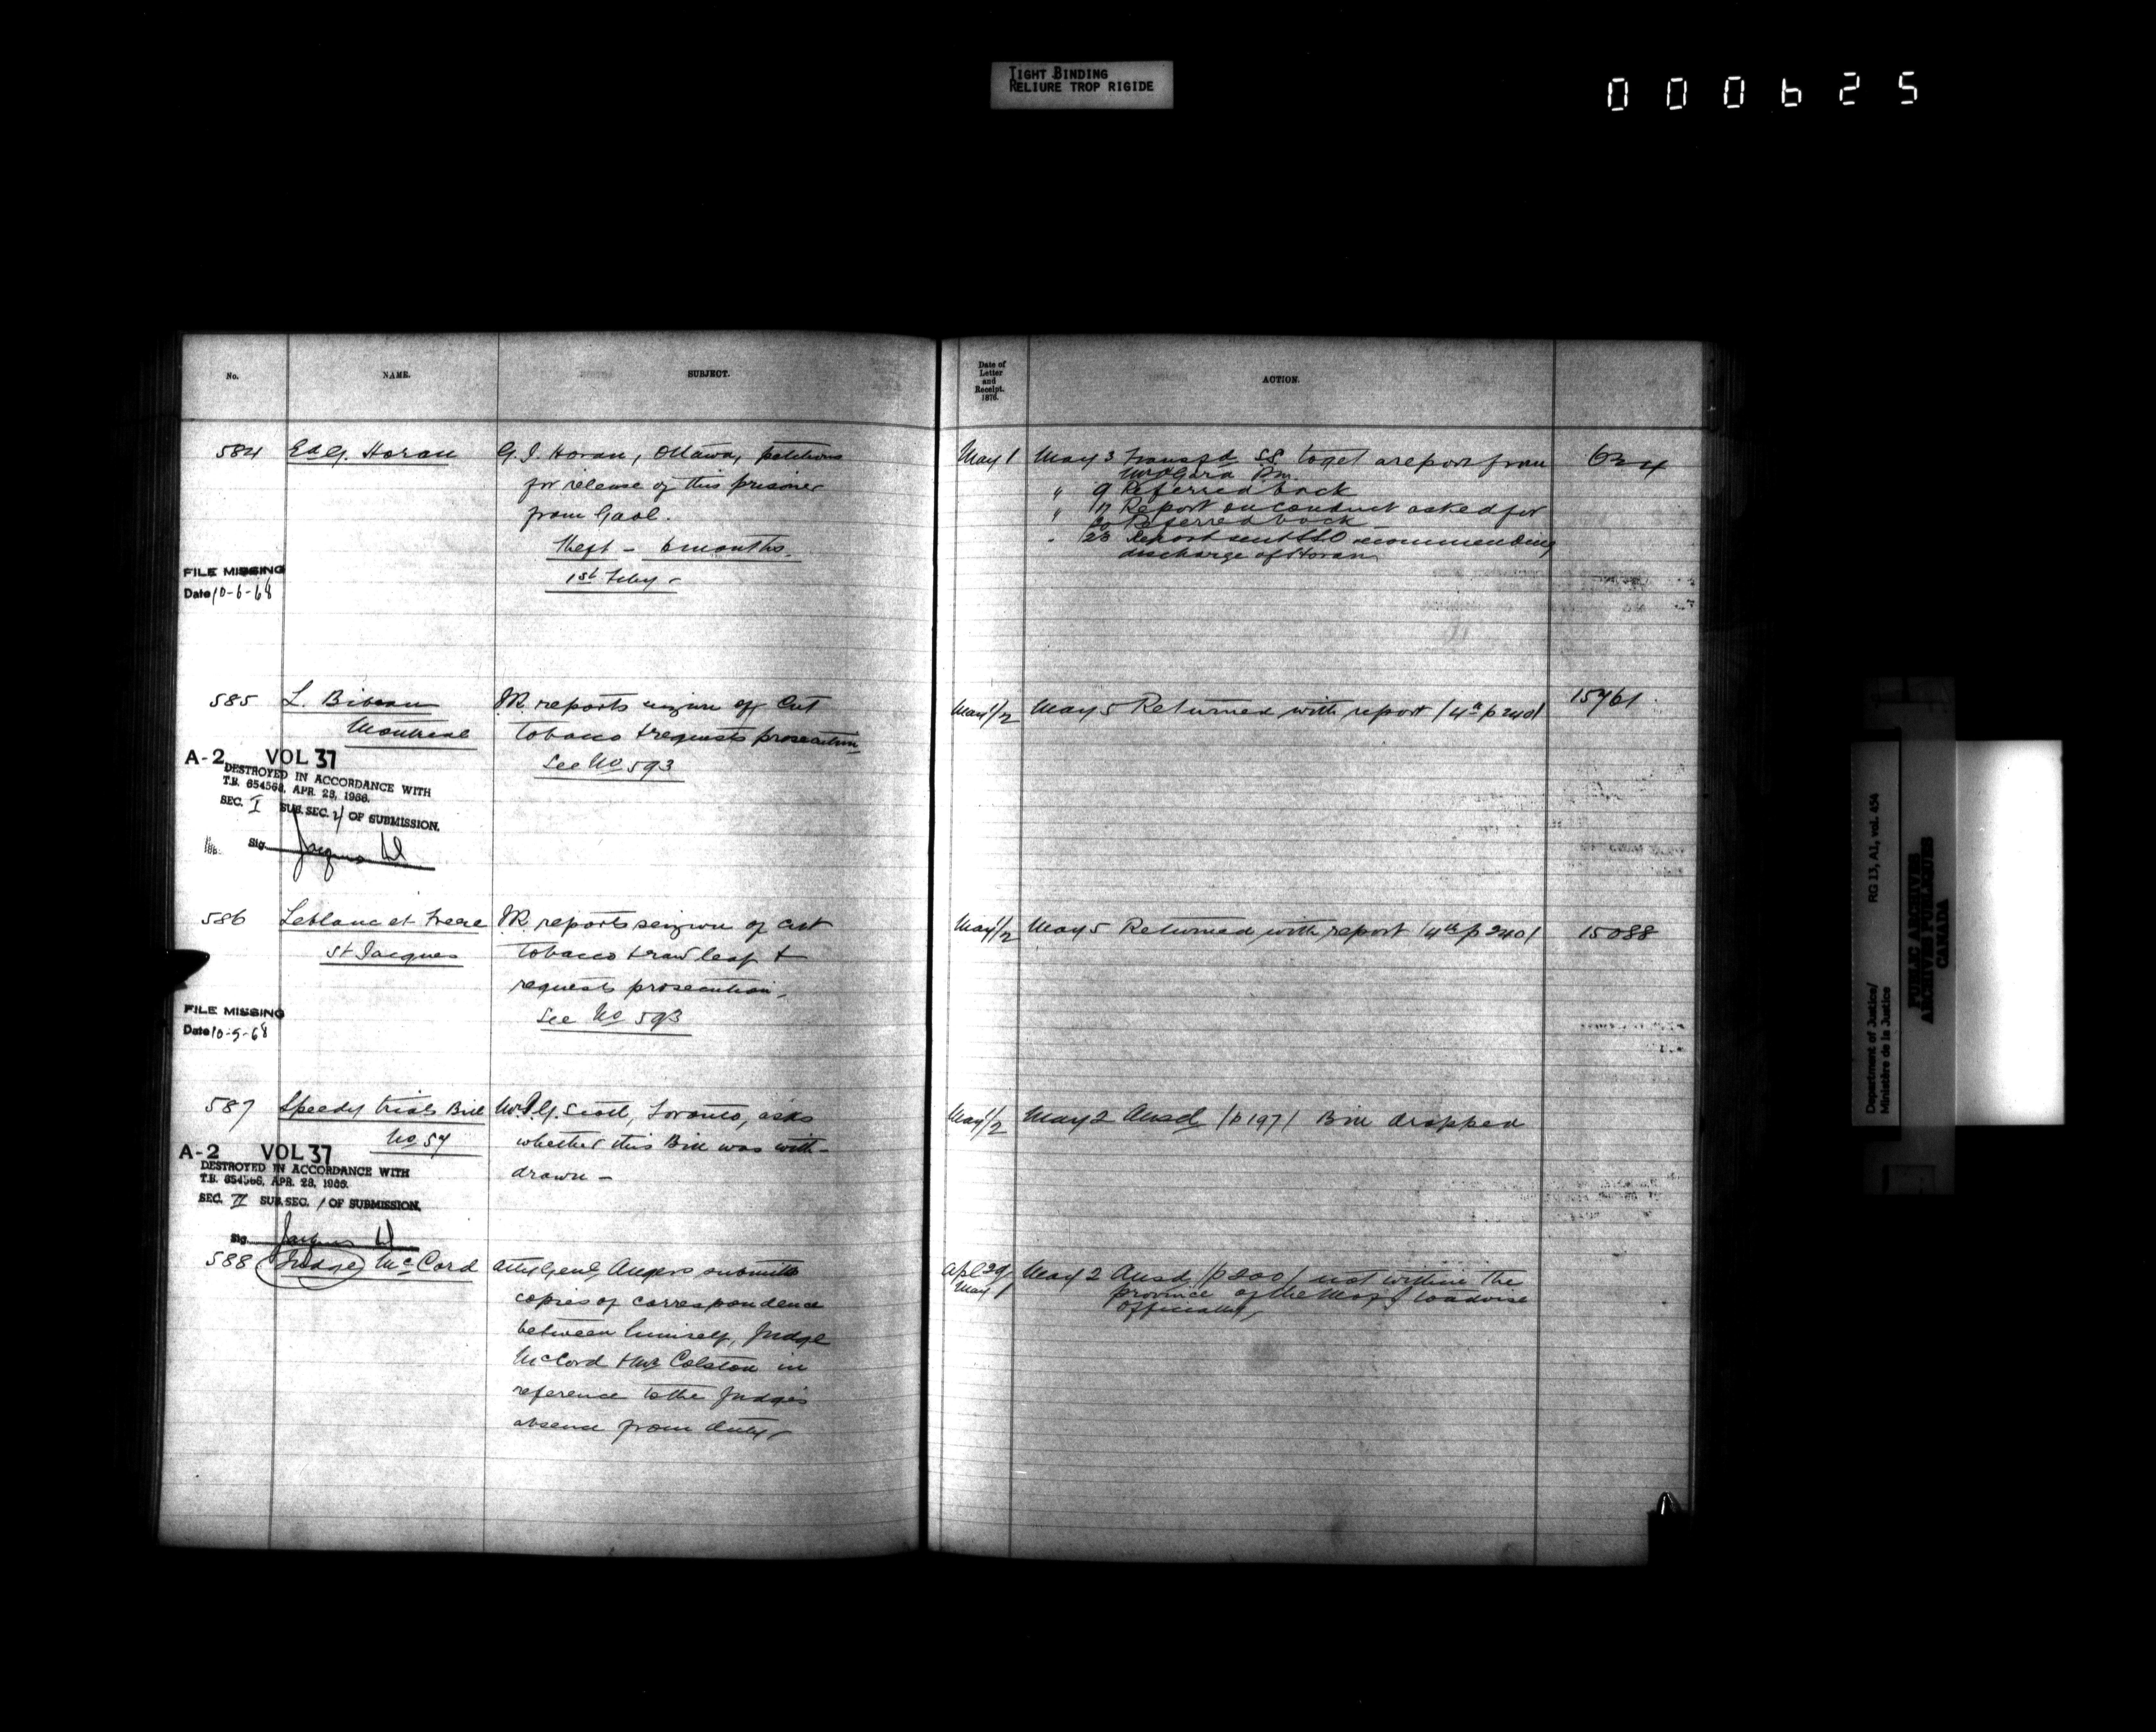 TIGHT BINDING
RELIURE TROP RIGIDE
000625
No. NAME. SUBJECT.
584 Ed G. Horan G. I. Horan, Ottawa, petitions
for release of this prisoner
from Gaol.
Theft - 6 months.
1st Feby -
FILE MISSING
Date 10-6-68
585 L. Bibeau IR. reports seizure of Cut
Montreal tobacco & requests prosecution
See No 593
A-2 VOL 37
DESTROYED IN ACCORDANCE WITH
T.B. 654568, APR. 28, 1966.
SEC. I SUB. SEC. 4 OF SUBMISSION.
Sig.
586 Leblanc et Frere IR reports seizure of cut
St Jacques tobacco & raw leaf &
requests prosecution.
See No 593
FILE MISSING
Date 10-5-68
587 Speedy trials Bill Mr. G. Scott, Toronto, asks
No 57 whether this Bill was with-
drawn -
A-2 VOL 37
DESTROYED IN ACCORDANCE WITH
T.B. 654568, APR. 28, 1966.
SEC. II SUB. SEC. 1 OF SUBMISSION.
Sig.
588 Judge McCord Atty Genl Angers submits
copies of correspondence
between himself, Judge
McCord & Mr Colston in
reference to the Judge's
absence from duty -
Date of
Letter
and
Receipt.
1876.
ACTION.
May 1 May 3 Transfd SS. to get a report from 634
Mr O'Gara P.M.
" 9 Referred back
" 17 Report on conduct asked for
20 Referred back -
" 23 Report sent recommending
discharge of Horan
May 1/2 May 5 Returned with report /4th p 240/ 15761
May 1/2 May 5 Returned with report /4th p 240/ 15088
May 1/2 May 2 Ansd /p 197/ Bill dropped
Apl 29 May 2 Ansd /p 200/ not within the
May 1 province of the M of J to advise
officially
Department of Justice/
Ministère de la Justice
RG 13, A1, vol. 454
PUBLIC ARCHIVES
ARCHIVES PUBLIQUES
CANADA